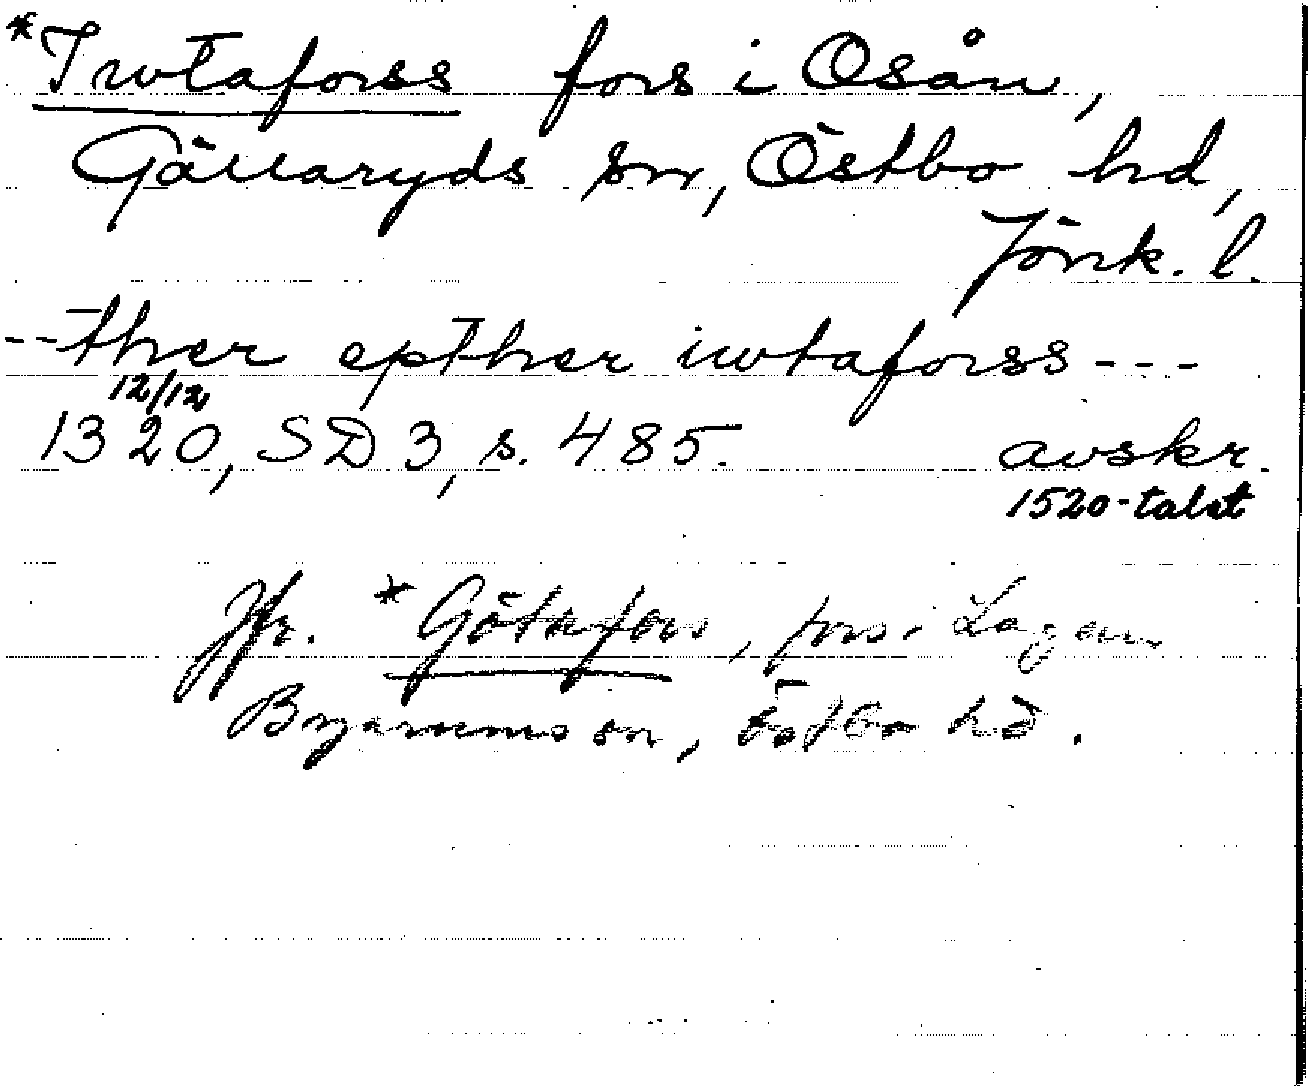 *Iwtaforss fors i Osån,
Gällaryds sn, Östbo hd,
Jönk. l.
--ther epther iwtaforss---
12/12
1320, SD 3, s. 485. avskr.
1520-talet
Jfr. *Götafors, fors i Lagan
Bryarums sn, Östbo hd.